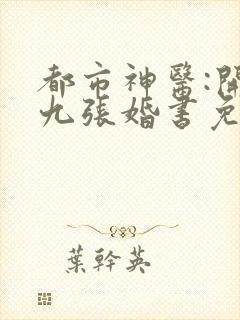 都市神醫:開
九張婚書免
葉幹英